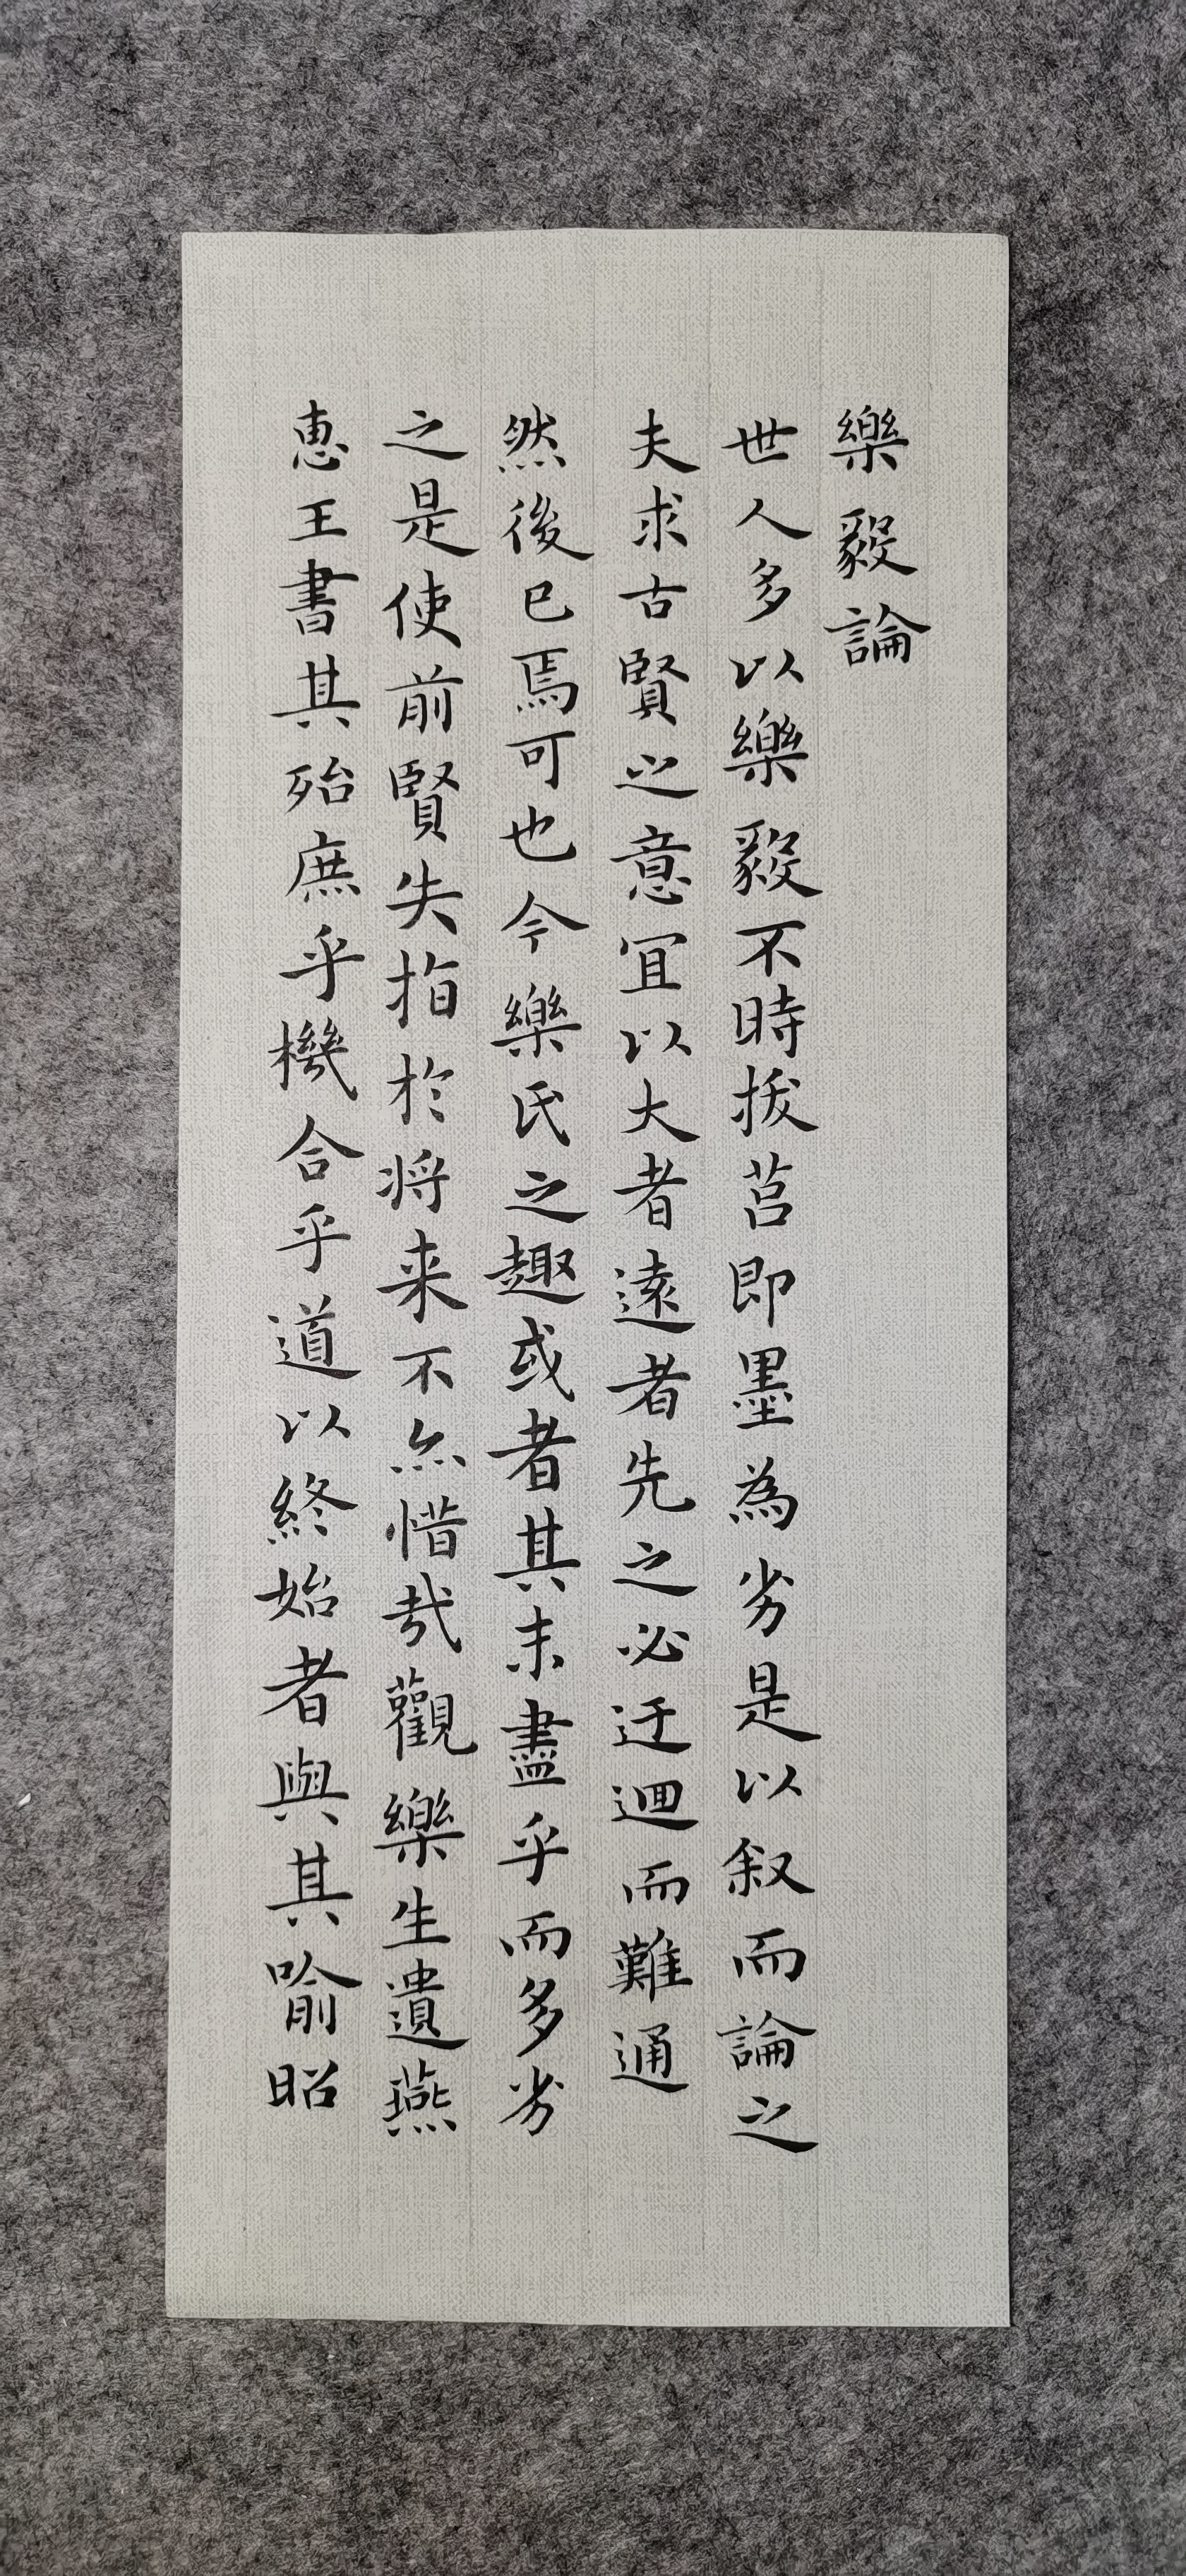 樂毅論
世人多以樂毅不時拔莒即墨為劣是以叙而論之
夫求古賢之意宜以大者遠者先之必迂迴而難通
然後已焉可也今樂氏之趣或者其未盡乎而多劣
之是使前賢失指於将来不亦惜哉觀樂生遺燕
惠王書其殆庶乎機合乎道以終始者與其喻昭